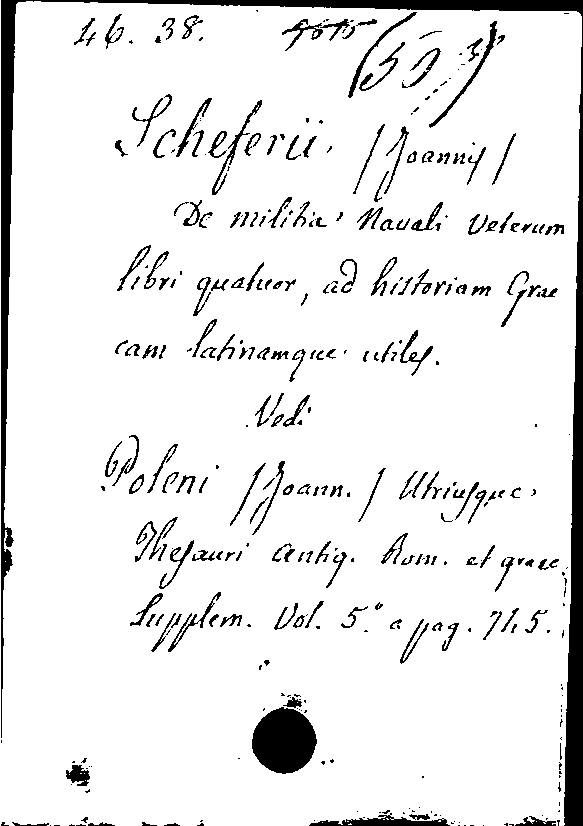 46. 38.
Scheferii, /Joannis/
De militia Navali Veterum
libri quatuor, ad historiam Grae
cam latinamque utiles.
Vedi
Poleni /Joann./ Utriusque
Thesauri Antiq. Rom. et graec.
Supplem. Vol. 5.° a pag. 745.